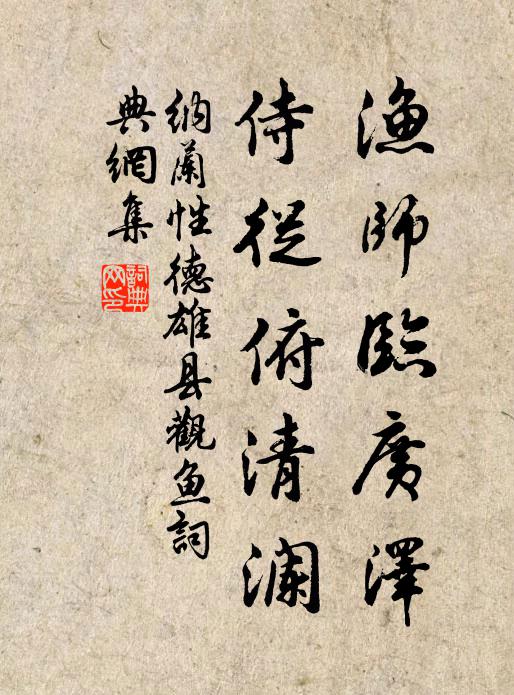 漁師臨廣澤
侍從俯清澜
纳蘭性德雄县觀鱼詞
典網集
詞典
网印